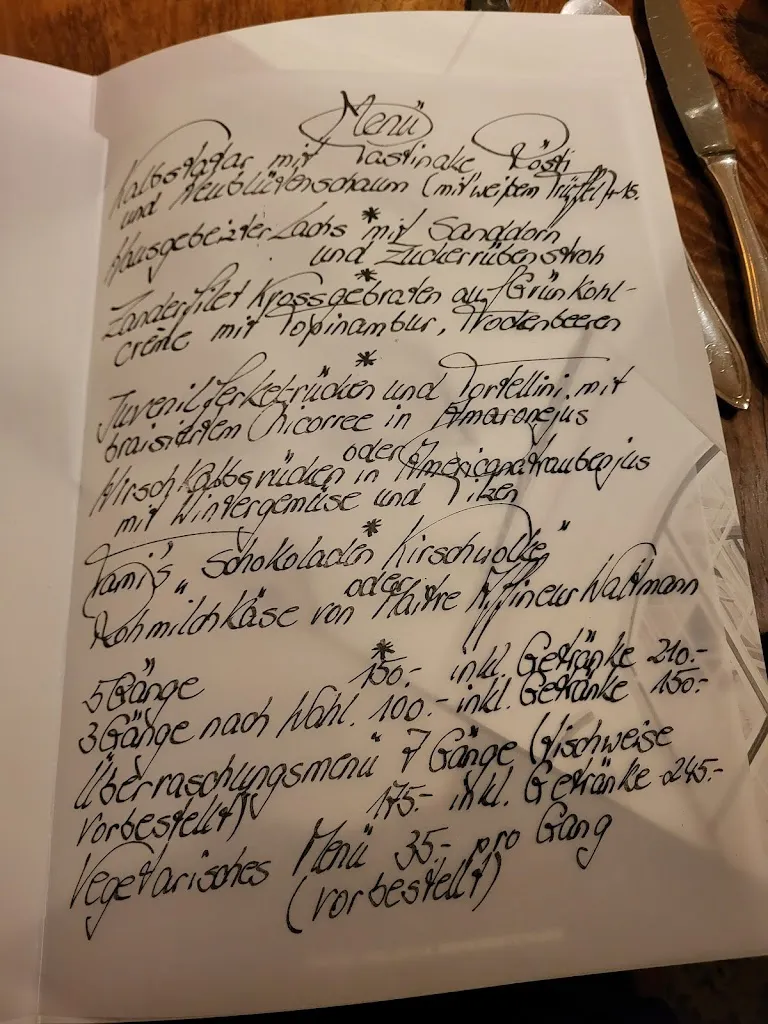 Menü
Kalbstatar mit Pastinake Rösti
und Heublütenschaum (mit weißem Trüffel)+15.
*
Hausgebeizter Lachs mit Sanddorn
und Zuckerrübenstroh
*
Zanderfilet Krossgebraten auf Grünkohl-
crème mit Topinambur, Trockenbeeren
*
Juvenilferkelrücken und Tortellini mit
braisiertem Chicorree in Amaronejus
oder
Hirschkalbsrücken in Americanatraubenjus
mit Wintergemüse und Pilzen
*
Tami's "Schokoladen Kirschwolke"
oder
Rohmilchkäse von Maître Affineur Waltmann
*
5 Gänge 150.- inkl. Getränke 210.-
3 Gänge nach Wahl. 100.- inkl. Getränke 150.-
Überraschungsmenü" 7 Gänge (tischweise
vorbestellt) 175.- inkl. Getränke 245.-
Vegetarisches Menü 35.- pro Gang
(vorbestellt)